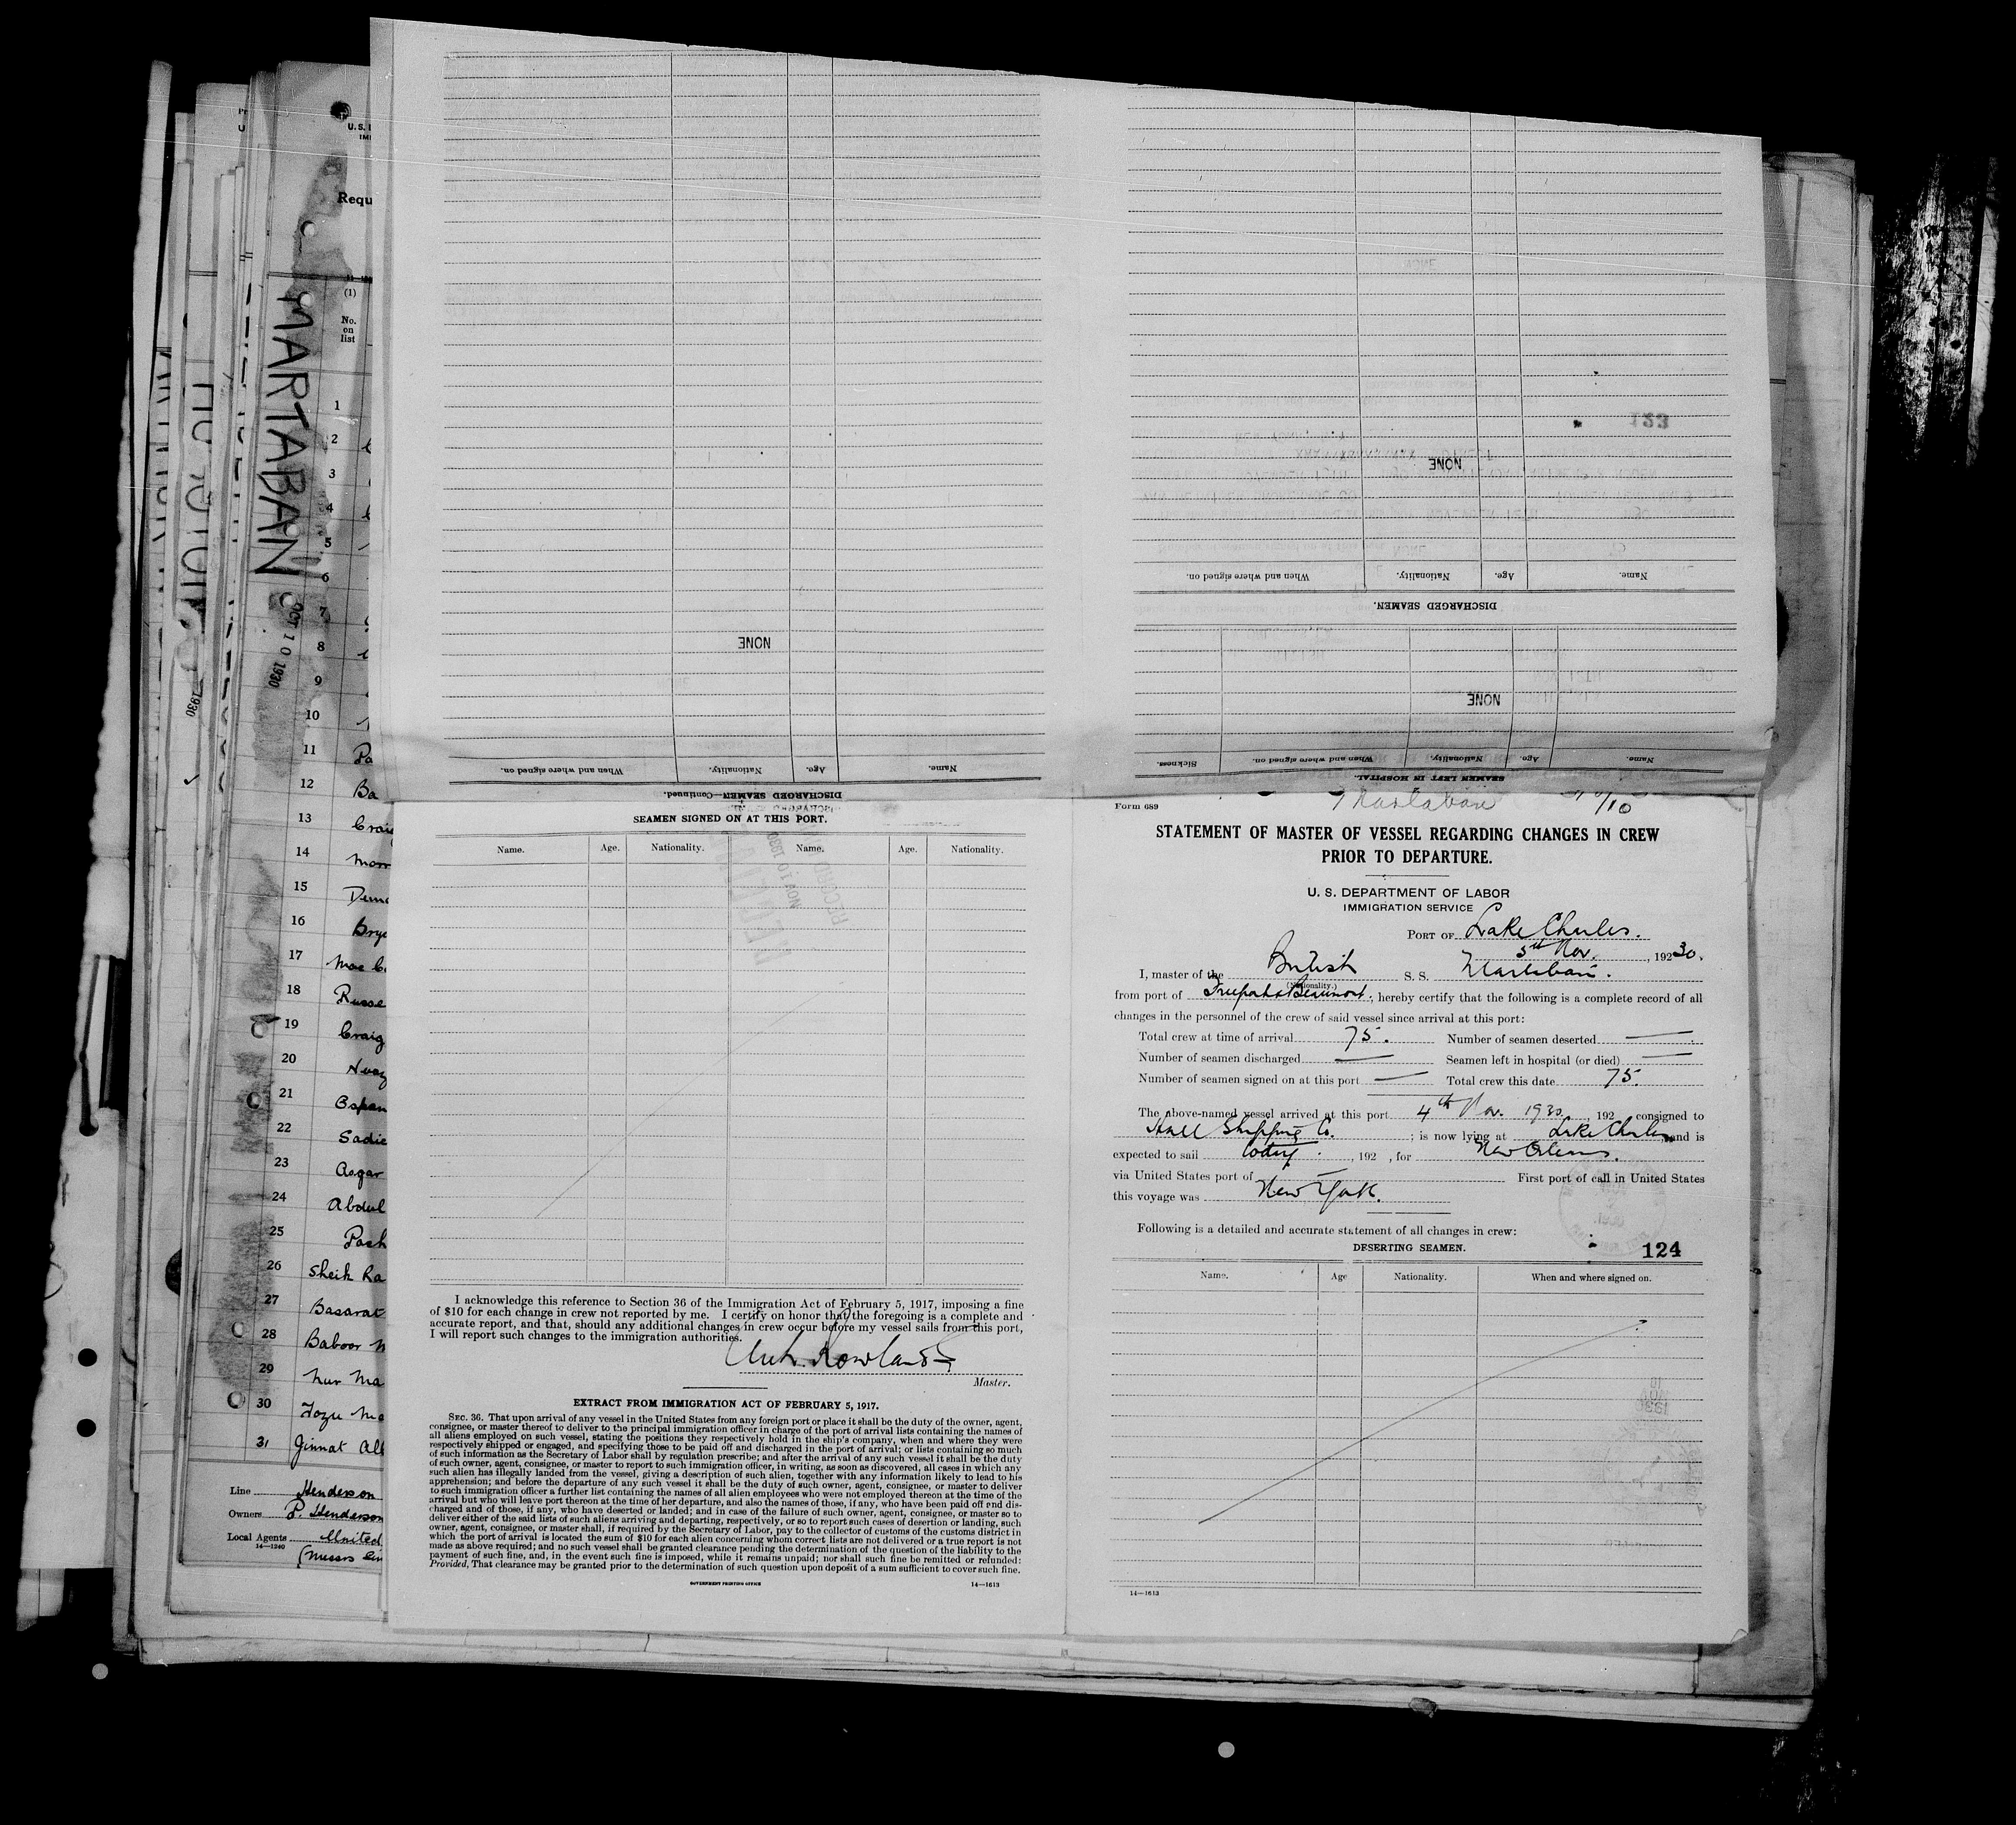 U.S.
Requ
(1)
No.
on
list
MARTABAN
OCT 10 1930
1930
1
2
3
4
5
6
7
8
9
10
11 Pa
12 Ba
13 Craig
14
15
16
17 Mac
18 Russe
19 Craig
20
21
22 Sadie
23
24 Abdul
25
26 Sheik Ra
27 Basarat
28 Baboor M
29 Nur Ma
30
31 Jinnat
Line Henderson
Owners P. Henderson
Local Agents United
14—1240
(Messrs
DISCHARGED SEAMEN—Continued.
Name. Age. Nationality. When and where signed on.
NONE
SEAMEN LEFT IN HOSPITAL.
Name. Age. Nationality. When and where signed on. Sickness.
NONE
DISCHARGED SEAMEN.
Name. Age. Nationality. When and where signed on.
NONE
123
SEAMEN SIGNED ON AT THIS PORT.
Name. Age. Nationality. Name. Age. Nationality.
NOV 10 1930
RECORD
I acknowledge this reference to Section 36 of the Immigration Act of February 5, 1917, imposing a fine
of $10 for each change in crew not reported by me. I certify on honor that the foregoing is a complete and
accurate report, and that, should any additional changes in crew occur before my vessel sails from this port,
I will report such changes to the immigration authorities.
Rowlands
Master.
EXTRACT FROM IMMIGRATION ACT OF FEBRUARY 5, 1917.
SEC. 36. That upon arrival of any vessel in the United States from any foreign port or place it shall be the duty of the owner, agent,
consignee, or master thereof to deliver to the principal immigration officer in charge of the port of arrival lists containing the names of
all aliens employed on such vessel, stating the positions they respectively hold in the ship's company, when and where they were
respectively shipped or engaged, and specifying those to be paid off and discharged in the port of arrival; or lists containing so much
of such information as the Secretary of Labor shall by regulation prescribe; and after the arrival of any such vessel it shall be the duty
of such owner, agent, consignee, or master to report to such immigration officer, in writing, as soon as discovered, all cases in which any
such alien has illegally landed from the vessel, giving a description of such alien, together with any information likely to lead to his
apprehension; and before the departure of any such vessel it shall be the duty of such owner, agent, consignee, or master to deliver
to such immigration officer a further list containing the names of all alien employees who were not employed thereon at the time of the
arrival but who will leave port thereon at the time of her departure, and also the names of those, if any, who have been paid off and dis-
charged and of those, if any, who have deserted or landed; and in case of the failure of such owner, agent, consignee, or master so to
deliver either of the said lists of such aliens arriving and departing, respectively, or so to report such cases of desertion or landing, such
owner, agent, consignee, or master shall, if required by the Secretary of Labor, pay to the collector of customs of the customs district in
which the port of arrival is located the sum of $10 for each alien concerning whom correct lists are not delivered or a true report is not
made as above required; and no such vessel shall be granted clearance pending the determination of the question of the liability to the
payment of such fine, and, in the event such fine is imposed, while it remains unpaid; nor shall such fine be remitted or refunded:
Provided, That clearance may be granted prior to the determination of such question upon deposit of a sum sufficient to cover such fine.
GOVERNMENT PRINTING OFFICE 14—1613
Form 689
Martaban
STATEMENT OF MASTER OF VESSEL REGARDING CHANGES IN CREW
PRIOR TO DEPARTURE.
U. S. DEPARTMENT OF LABOR
IMMIGRATION SERVICE
PORT OF Lake Charles.
5th Nov., 192 30.
I, master of the British S. S. Martaban.
(Nationality.)
from port of Freeport & Beaumont, hereby certify that the following is a complete record of all
changes in the personnel of the crew of said vessel since arrival at this port:
Total crew at time of arrival 75. Number of seamen deserted —
Number of seamen discharged — Seamen left in hospital (or died) —
Number of seamen signed on at this port — Total crew this date 75.
The above-named vessel arrived at this port 4th Nov. 1930, 192 consigned to
Hall Shipping Co. ; is now lying at Lake Charles and is
expected to sail today., 192 , for New Orleans.
via United States port of — First port of call in United States
this voyage was New York.
Following is a detailed and accurate statement of all changes in crew:
DESERTING SEAMEN. 124
Name. Age Nationality. When and where signed on.
14—1613